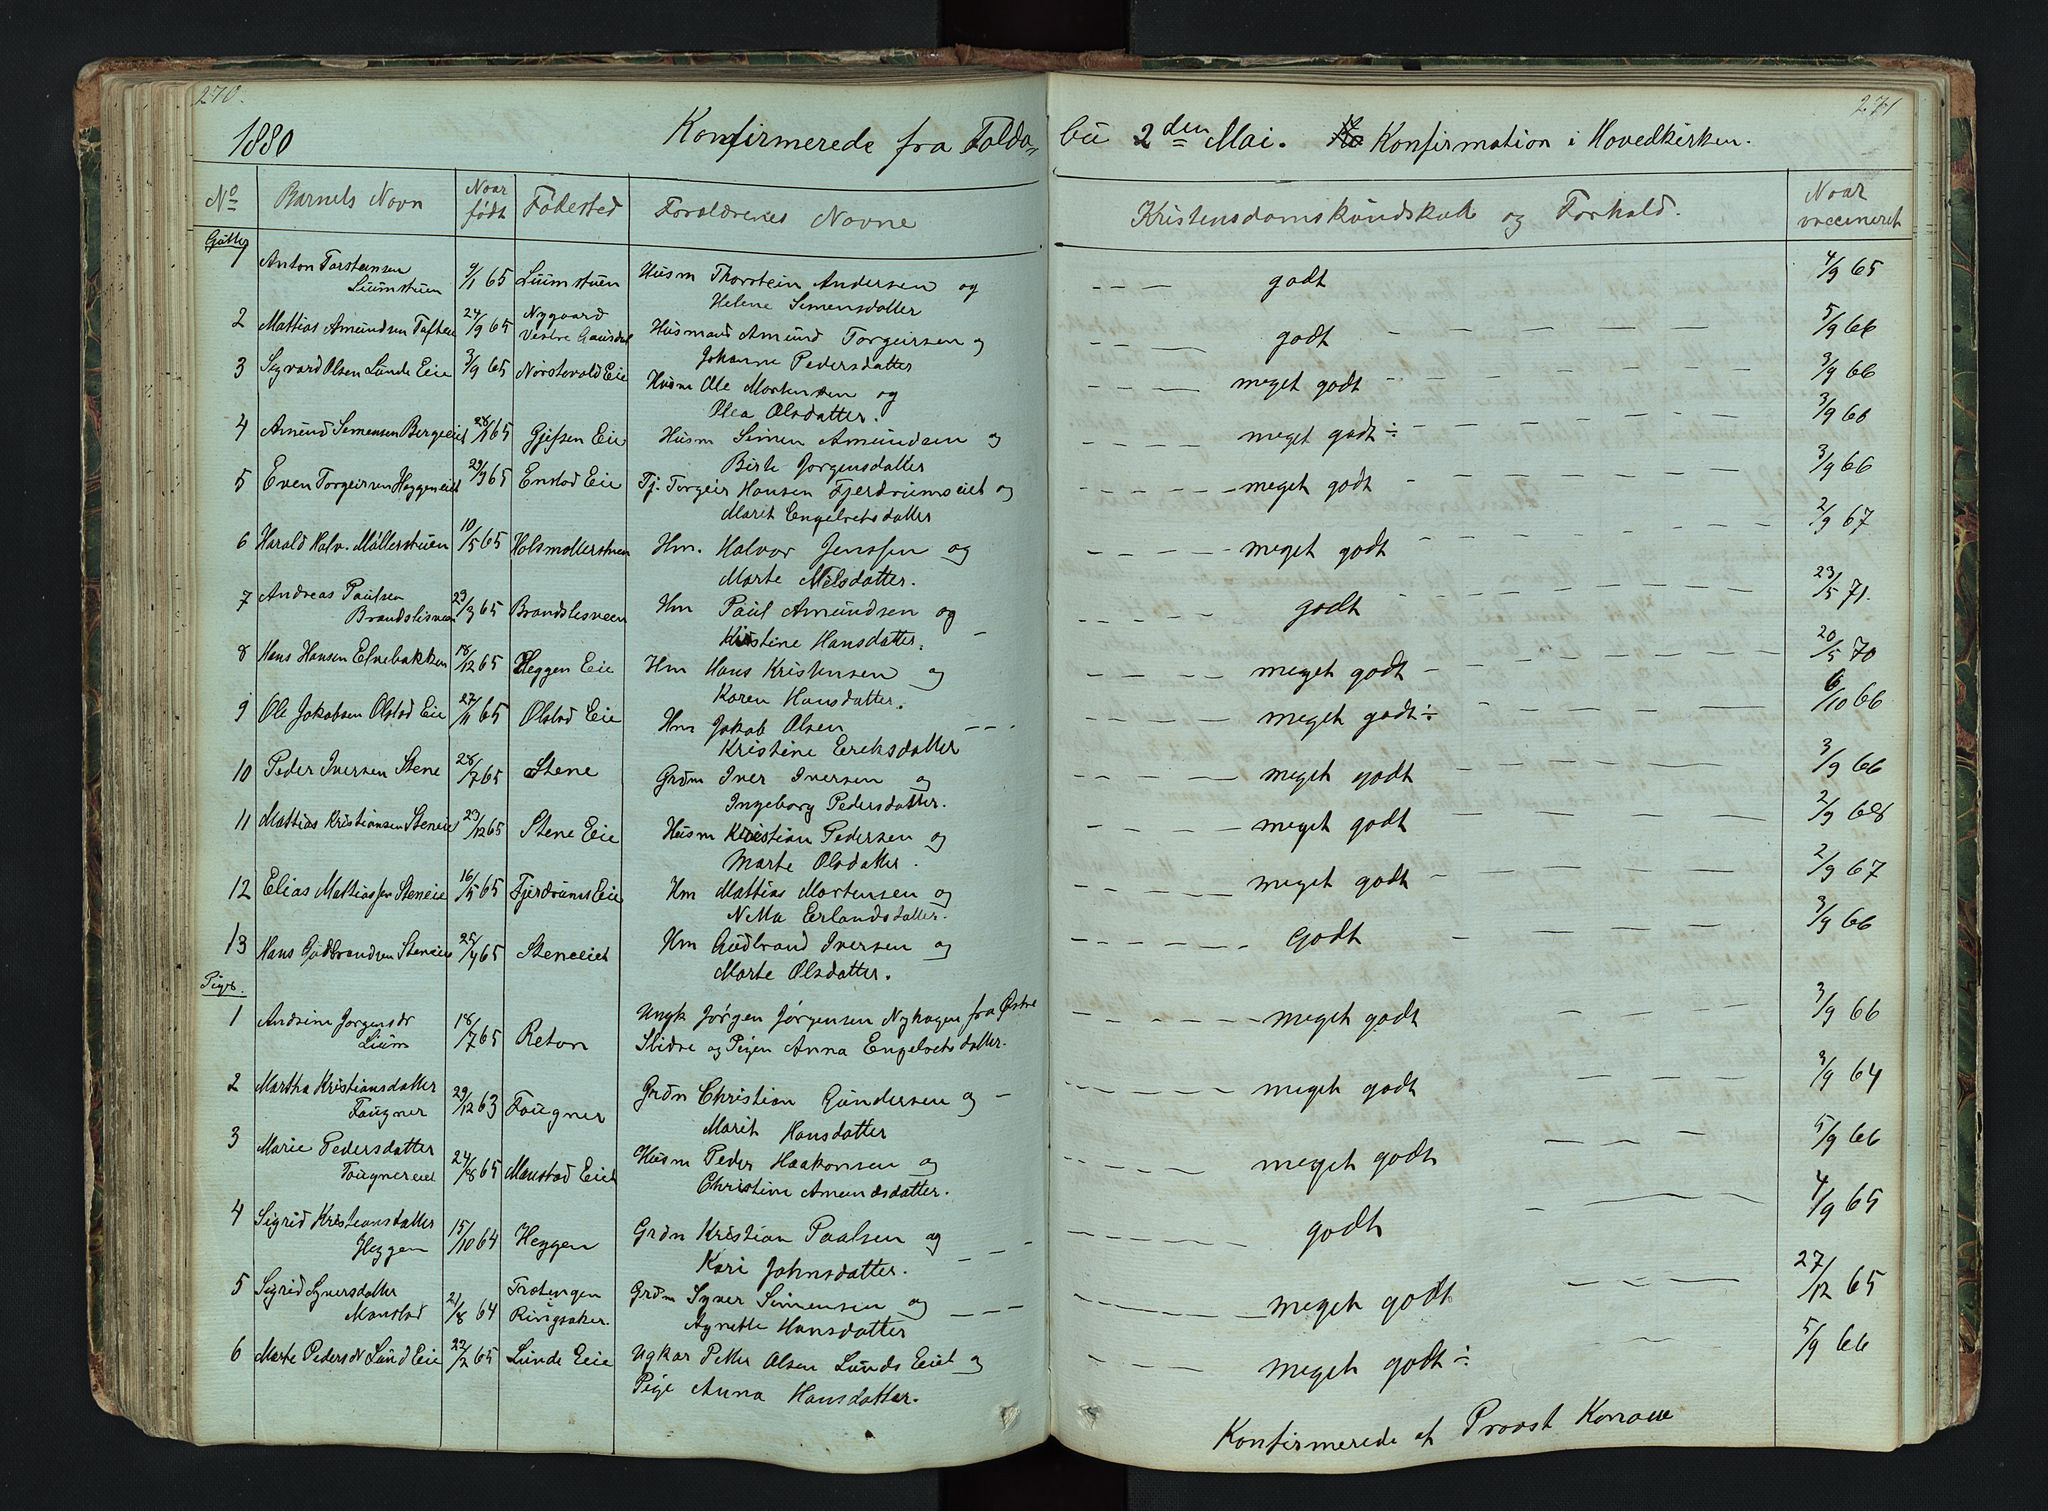 270.
271
1880 Konfirmerede fra Folda- bu 2den Mai. Konfirmation i Hovedkirken.
No Barnets Navn Naar født Fødested Forældrenes Navne Kristensdomskundskab og Forhold. Naar vaccineret
Gutter
1 Anton Torsteinsen 9/1 65 Liumstuen Husm Thorstein Andersen og godt 4/9 65
Liumstuen Helene Simensdatter
2 Mattias Amundsen Toften 24/9 65 Nygaard Husmand Amund Torgeirsen og godt 5/9 66
Vestre Gausdal Johanne Pedersdatter
3 Sigvard Olsen Lunde Eie 3/9 65 Norstevold Eie Husm Ole Mortensen og meget godt 3/9 66
Olea Olsdatter.
4 Amund Simensen Bergeeiet 28/1 65 Gjefsen Eie Husm Simen Amundsen og meget godt ÷ 3/9 66
Birte Jorgensdatter
5 Even Torgeirsen Heggeneiet 29/3 65 Enstad Eie Tj. Torgeir Hansen Fjerdrumseiet og meget godt 3/9 66
Marit Engelvetsdatter
6 Harald Halv. Møllerstuen 10/5 65 Holsmøllerstuen Hm. Halvor Jenssen og meget godt 2/9 67
Marte Nilsdatter.
7 Andreas Paulsen 23/3 65 Brandslisveen Hm Paul Amundsen og godt 23/5 71.
Brandslisveen Kristine Hansdatter.
8 Hans Hansen Elvebakken 18/12 65 Heggen Eie Hm Hans Kristensen og meget godt 20/5 70
Karen Hansdatter.
9 Ole Jakobsen Olstad Eie 27/11 65 Olstad Eie Hm Jakob Olsen meget godt ÷ 6/10 66
Kristine Eriksdatter
10 Peder Iversen Stene 28/7 65 Stene Grdm Iver Iversen og meget godt 3/9 66
Ingeborg Pedersdatter.
11 Mattias Kristiansen Steneie 23/12 65 Stene Eie Husm Kristian Pedersen og meget godt 2/9 68
Marte Olsdatter.
12 Elias Mattiassen Steneie 16/5 65 Fjerdrums Eie Hm Mattias Mortensen og meget godt 2/9 67
Netta Erlandsdatter.
13 Hans Gudbrandsen Steneie 25/9 65 Steneeiet Hm Gudbrand Iversen og Godt 3/9 66
Marte Olsdatter.
Piger.
1 Andrine Jorgensdr 18/7 65 Retvn Ungk Jørgen Jørgensen Nyhagen fra Østre meget godt 3/9 66
Lium Slidre og Pigen Anna Engelvetsdatter.
2 Martha Kristiansdatter 29/12 63 Fougner Grdm Christian Gundersen og meget godt 3/9 64
Fougner Marit Hansdatter
3 Marie Pedersdatter 24/8 65 Manstad Eie Husm Peder Haakonsen og meget godt 5/9 66
Fougnereiet Christine Amundsdatter.
4 Sigrid Kristiansdatter 15/10 64 Heggen Grdm Kristian Paalsen og godt 4/9 65
Heggen Kari Johnsdatter.
5 Sigrid Synersdatter 21/8 64 Trætengen Grdm Syver Simensen og meget godt 27/12 65
Manstad Ringsaker Agnethe Hansdatter
6 Marte Pedersdr Lund Eie 22/2 65 Lunde Eie Ugkar Petter Olsen Lunds Eiet og meget godt ÷ 5/9 66
Pige Anna Hansdatter.
Konfirmerede af Provst Konow